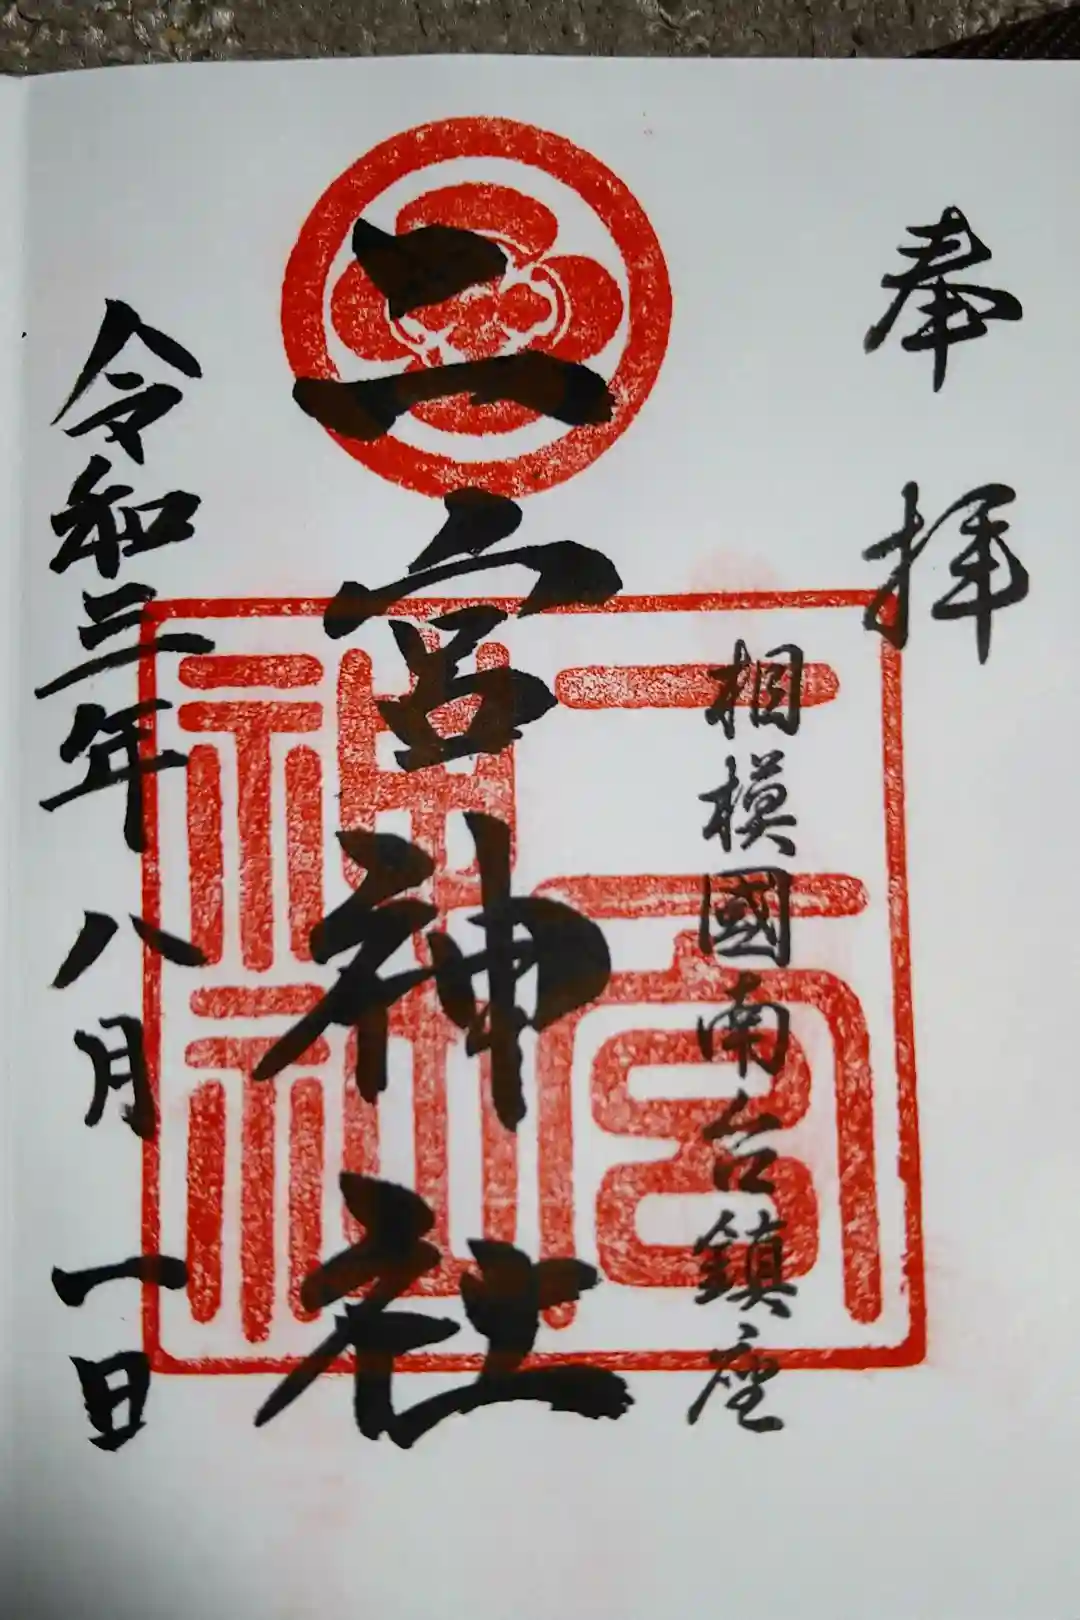 奉拝
相模國南台鎮座
二宮神社
二宮
神社
令和三年八月一日